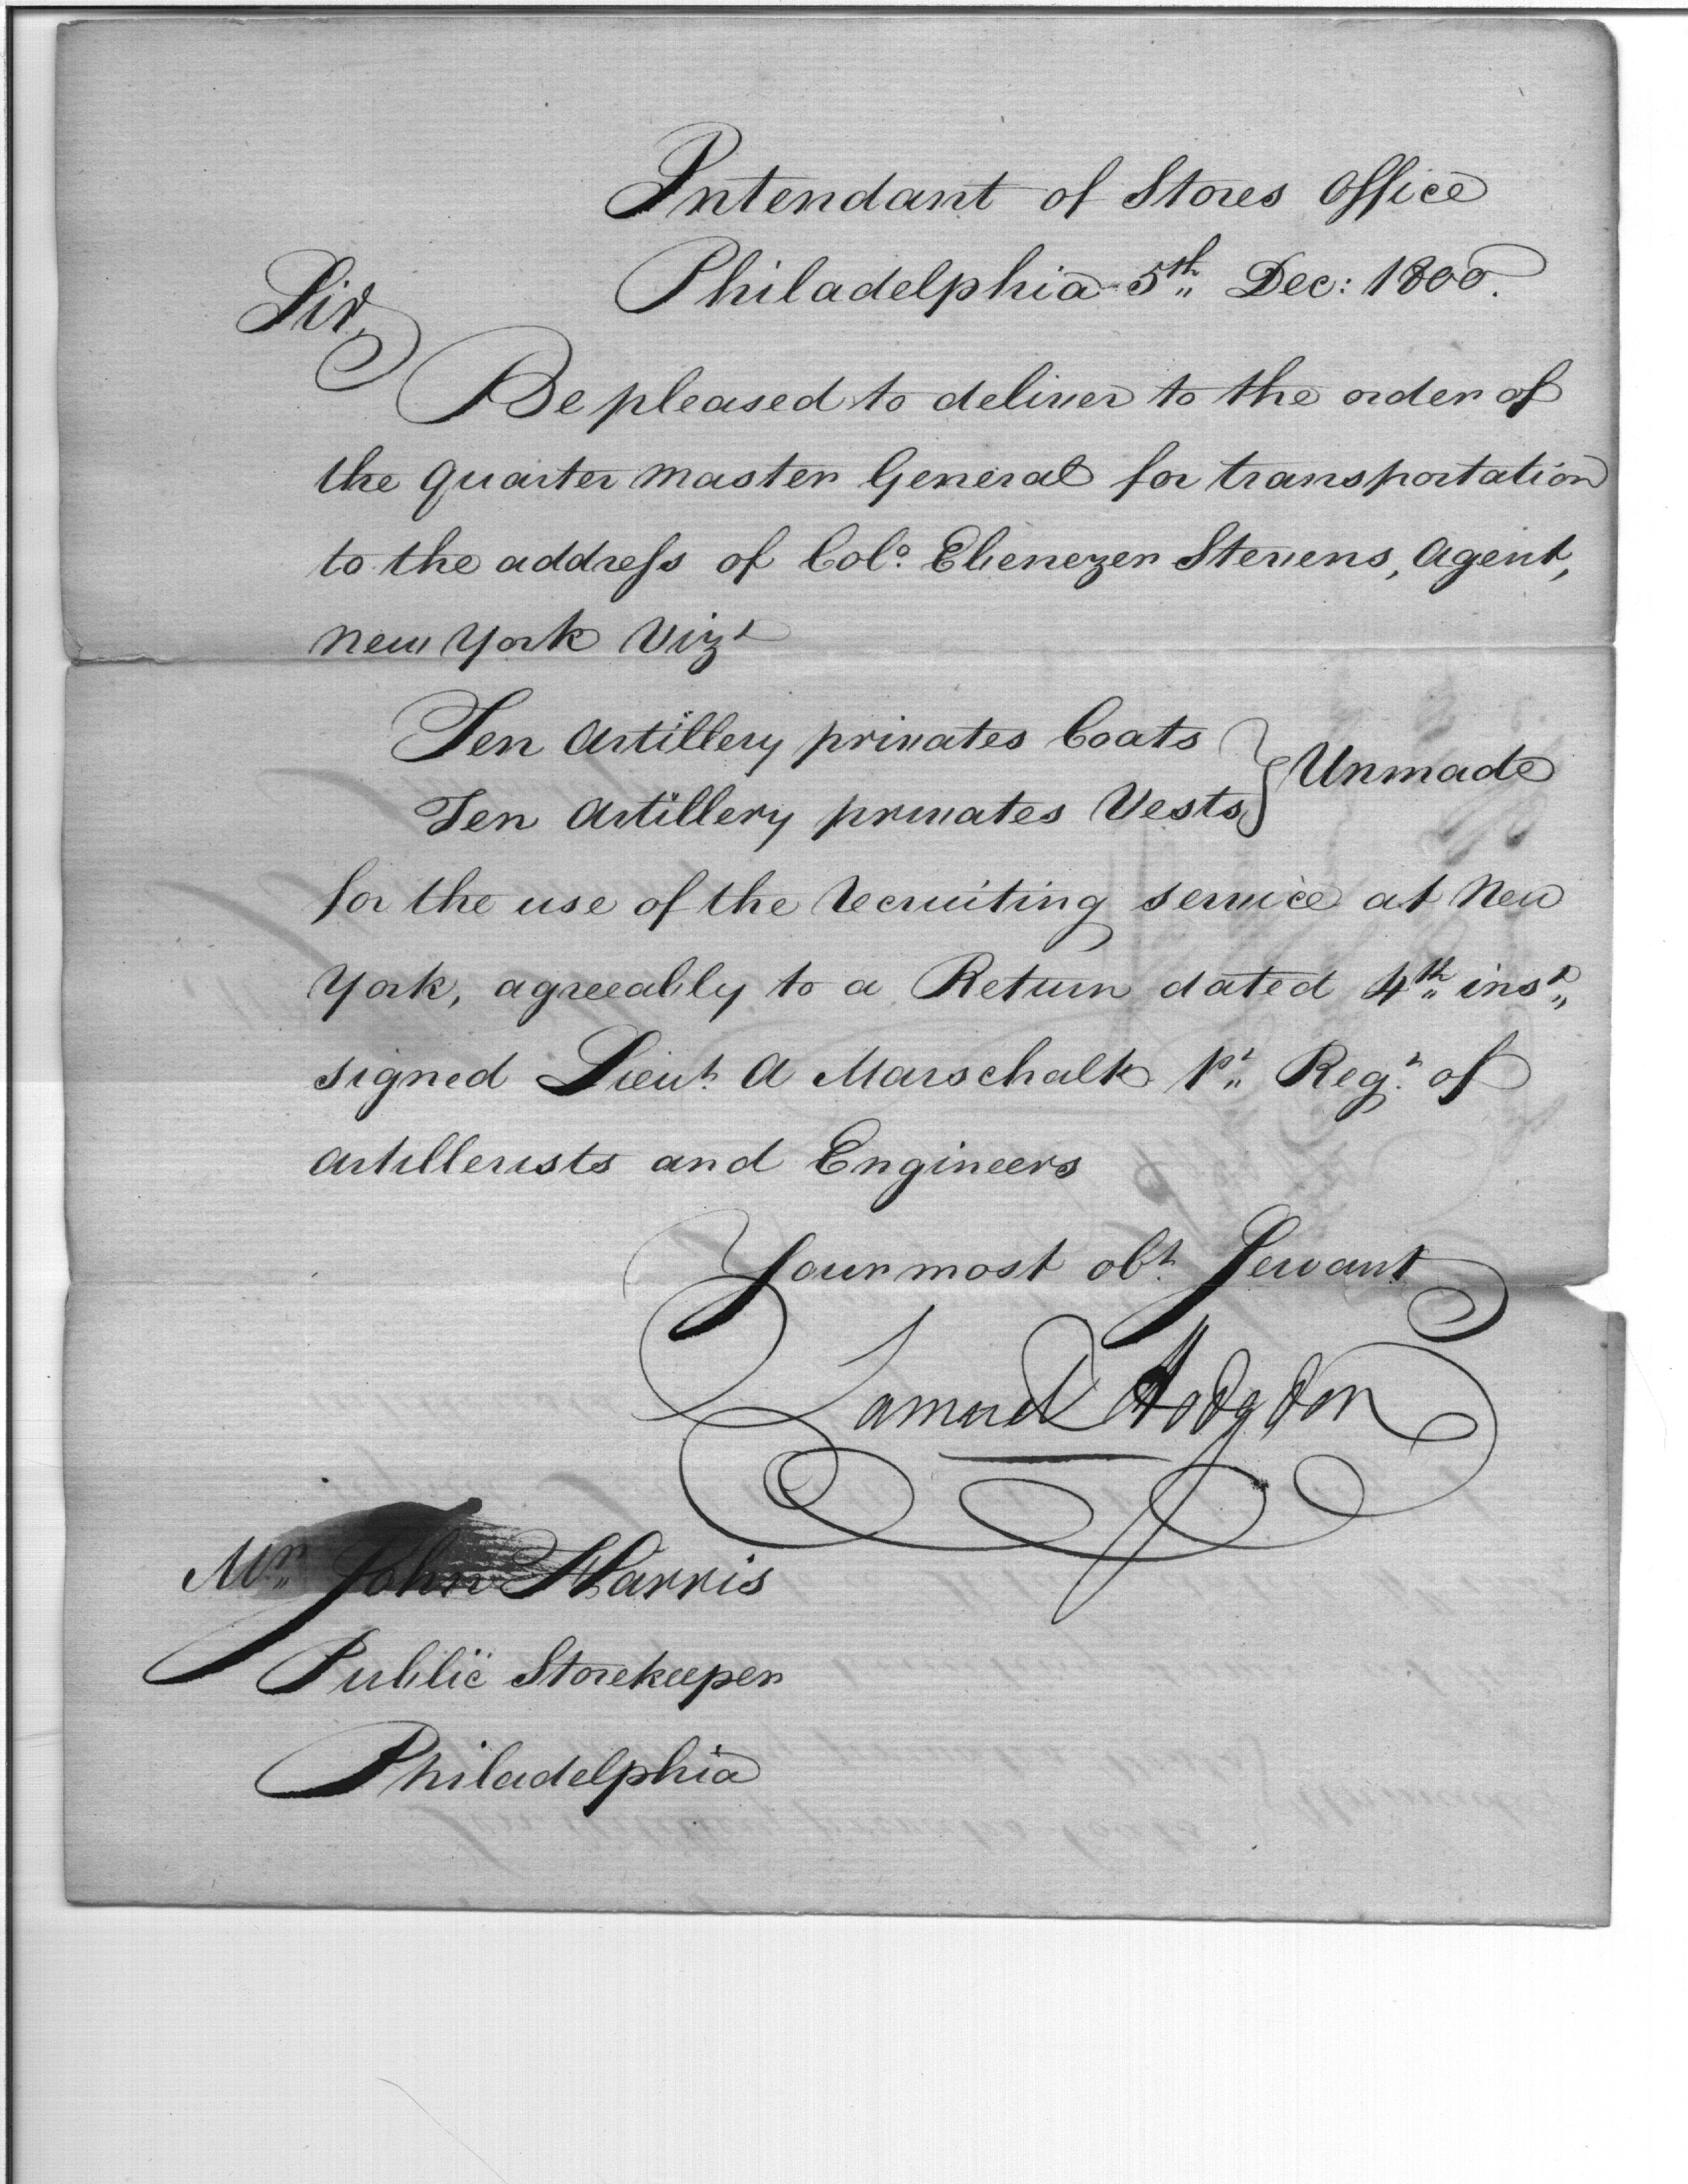 Intendant of Stores Office
Philadelphia 5th,, Dec: 1800.
Sir,
Be pleased to deliver to the order of
the Quarter Master General for transportation
to the addreſs of Colo. Ebenezer Stevens, Agent,
New York Vizt
Ten Artillery privates Coats } Unmade
Ten Artillery privates Vests
for the use of the recruiting service at New
York, agreeably to a Return dated 4th,, inst,,
signed Lieut. A Marschalk 1st,, Regt. of
Artillerists and Engineers
Your most obt. Servant
Samuel Hodgdon
Mr,, John Harris
Public Storekeeper
Philadelphia